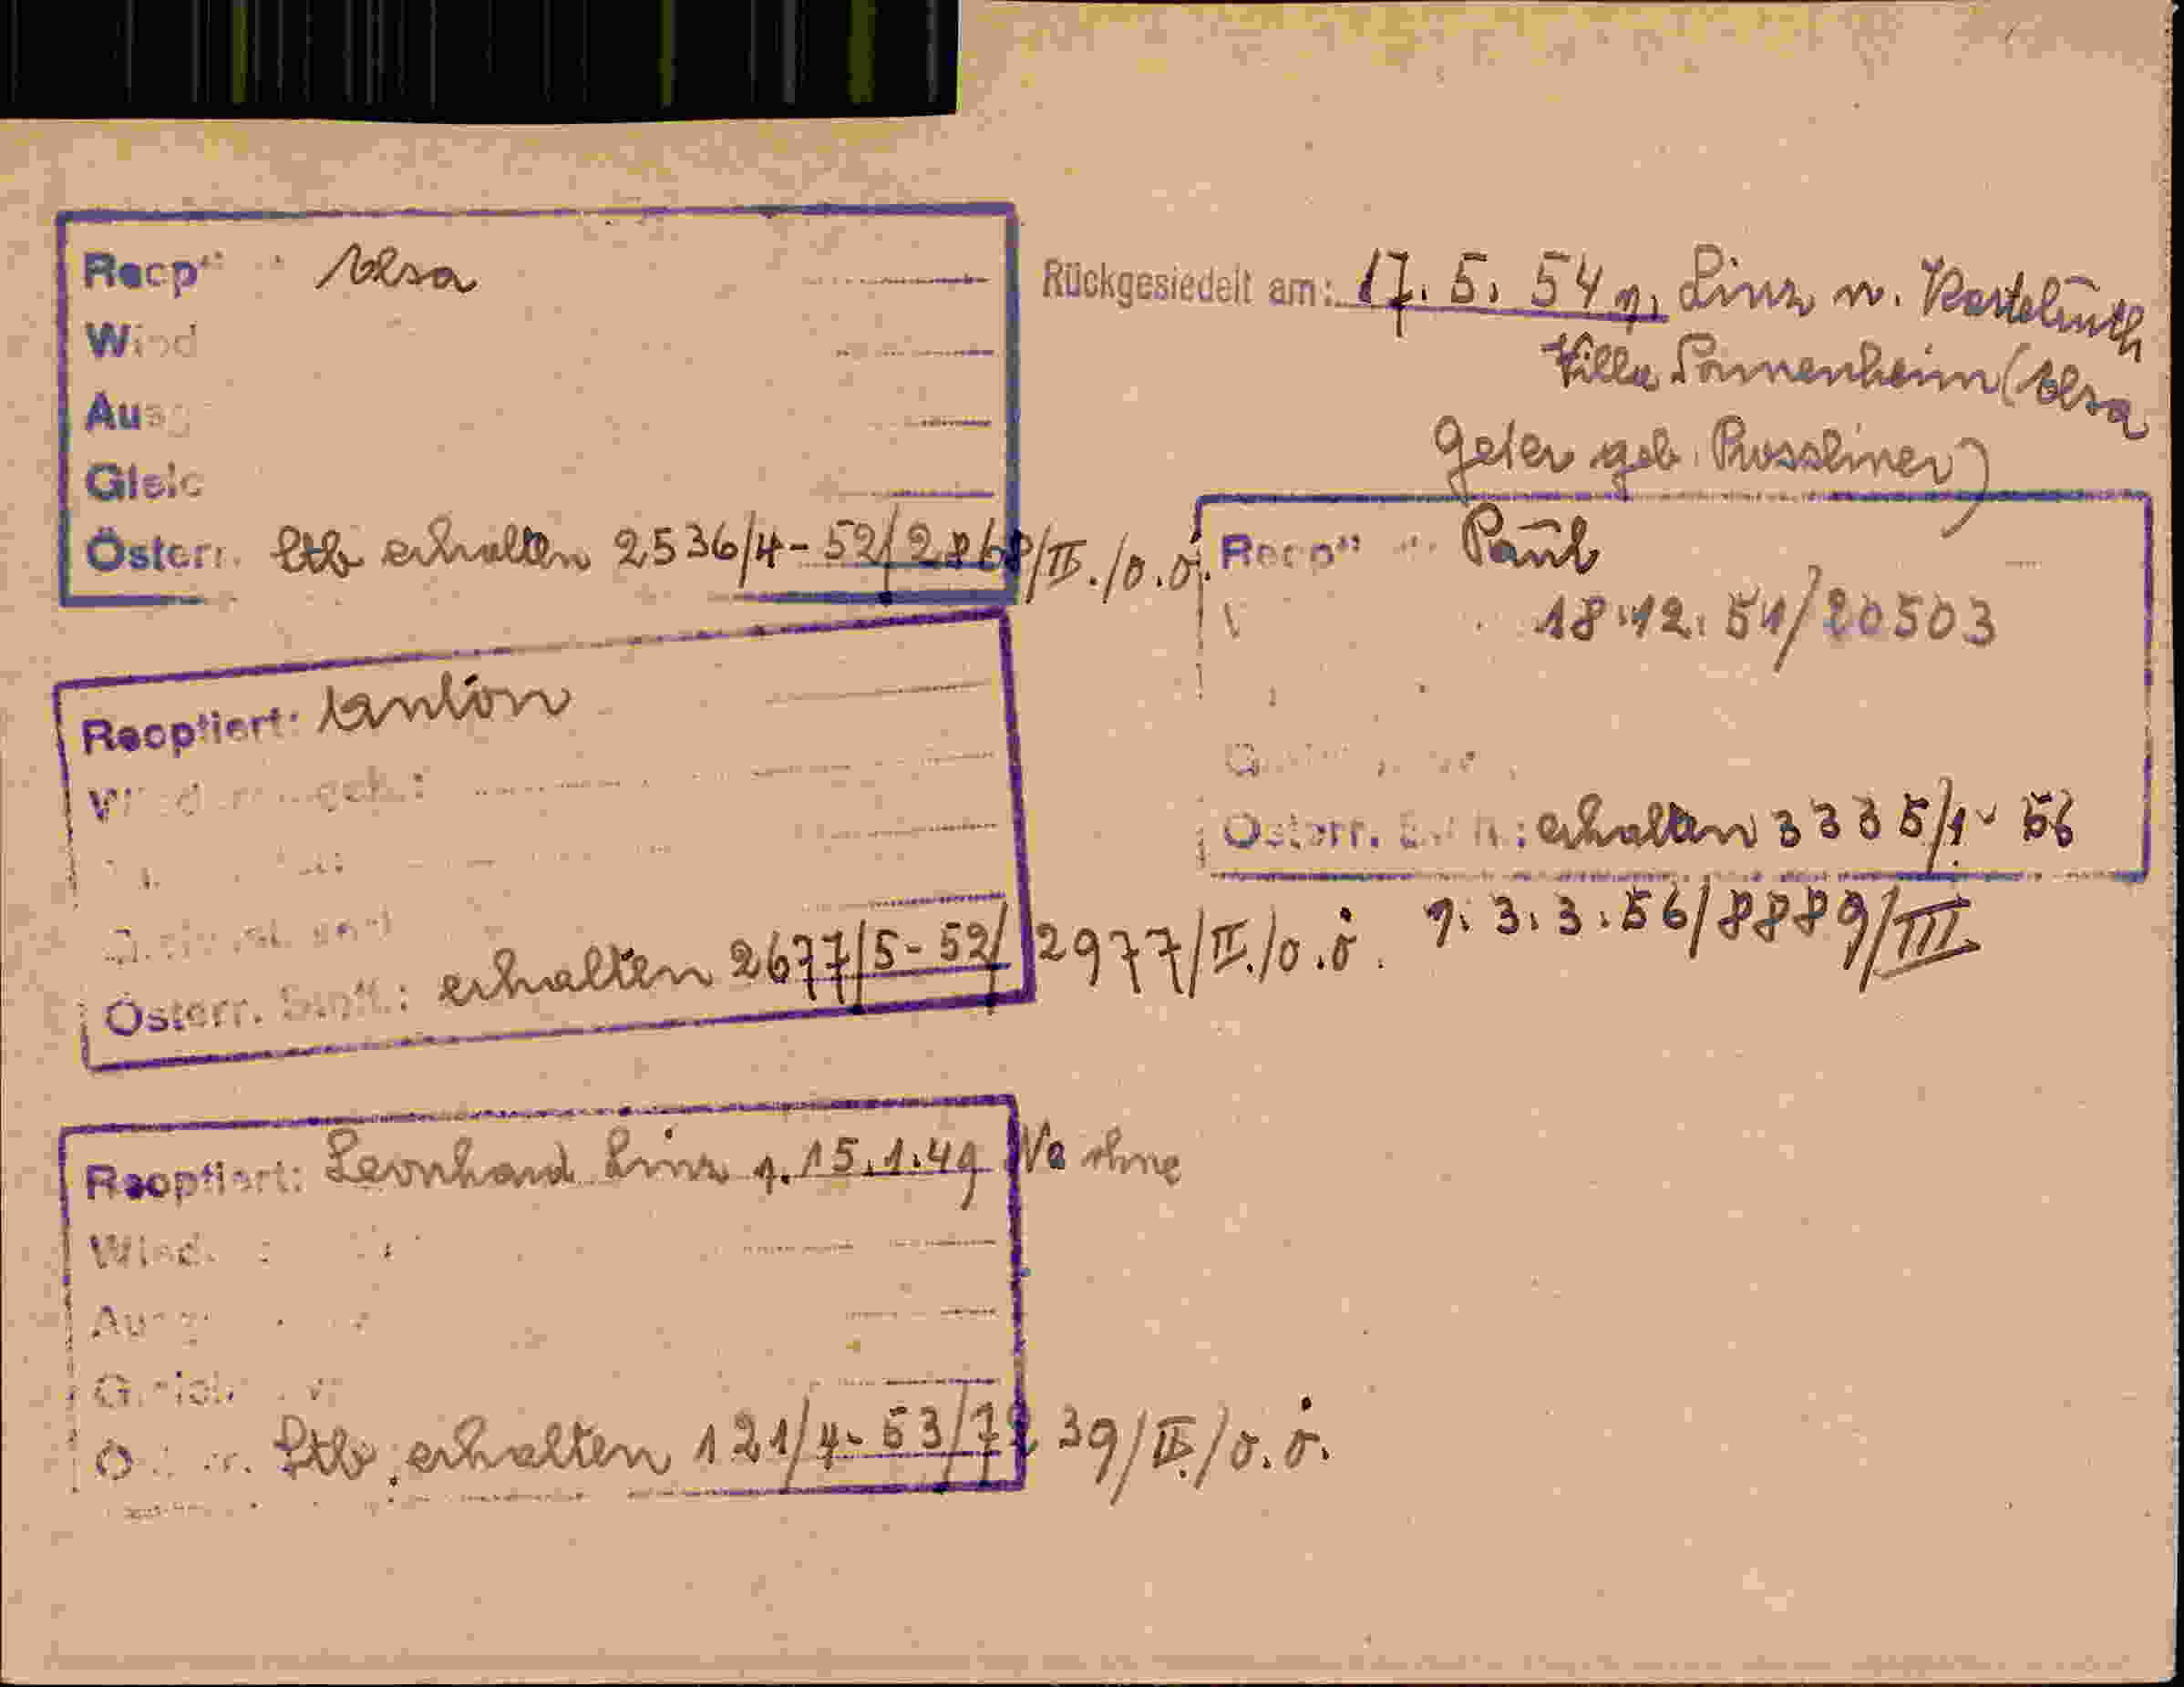 Reopt Elsa
Wied
Ausg
Gleic
Österr. Stb erhalten 2536/4-52/2868/II./o.ö.
Rückgesiedelt am: 17. 5. 54 n. Linz n. Kastelruth
Villa Sonnenheim (Elsa
Geier geb. Rossliner)
Reoptiert: Anton
Österr. Stb.: erhalten 2677/5-52/2977/II./o.ö.
Reopt Paul
18.12.51/20503
Österr. erhalten 3335/1-56
n. 3.3.56/8889/III
Reoptiert: Leonhard Linz n. 15.1.49 Va ohne
Wied.
Stb. erhalten 121/4-53/7239/II./o.ö.